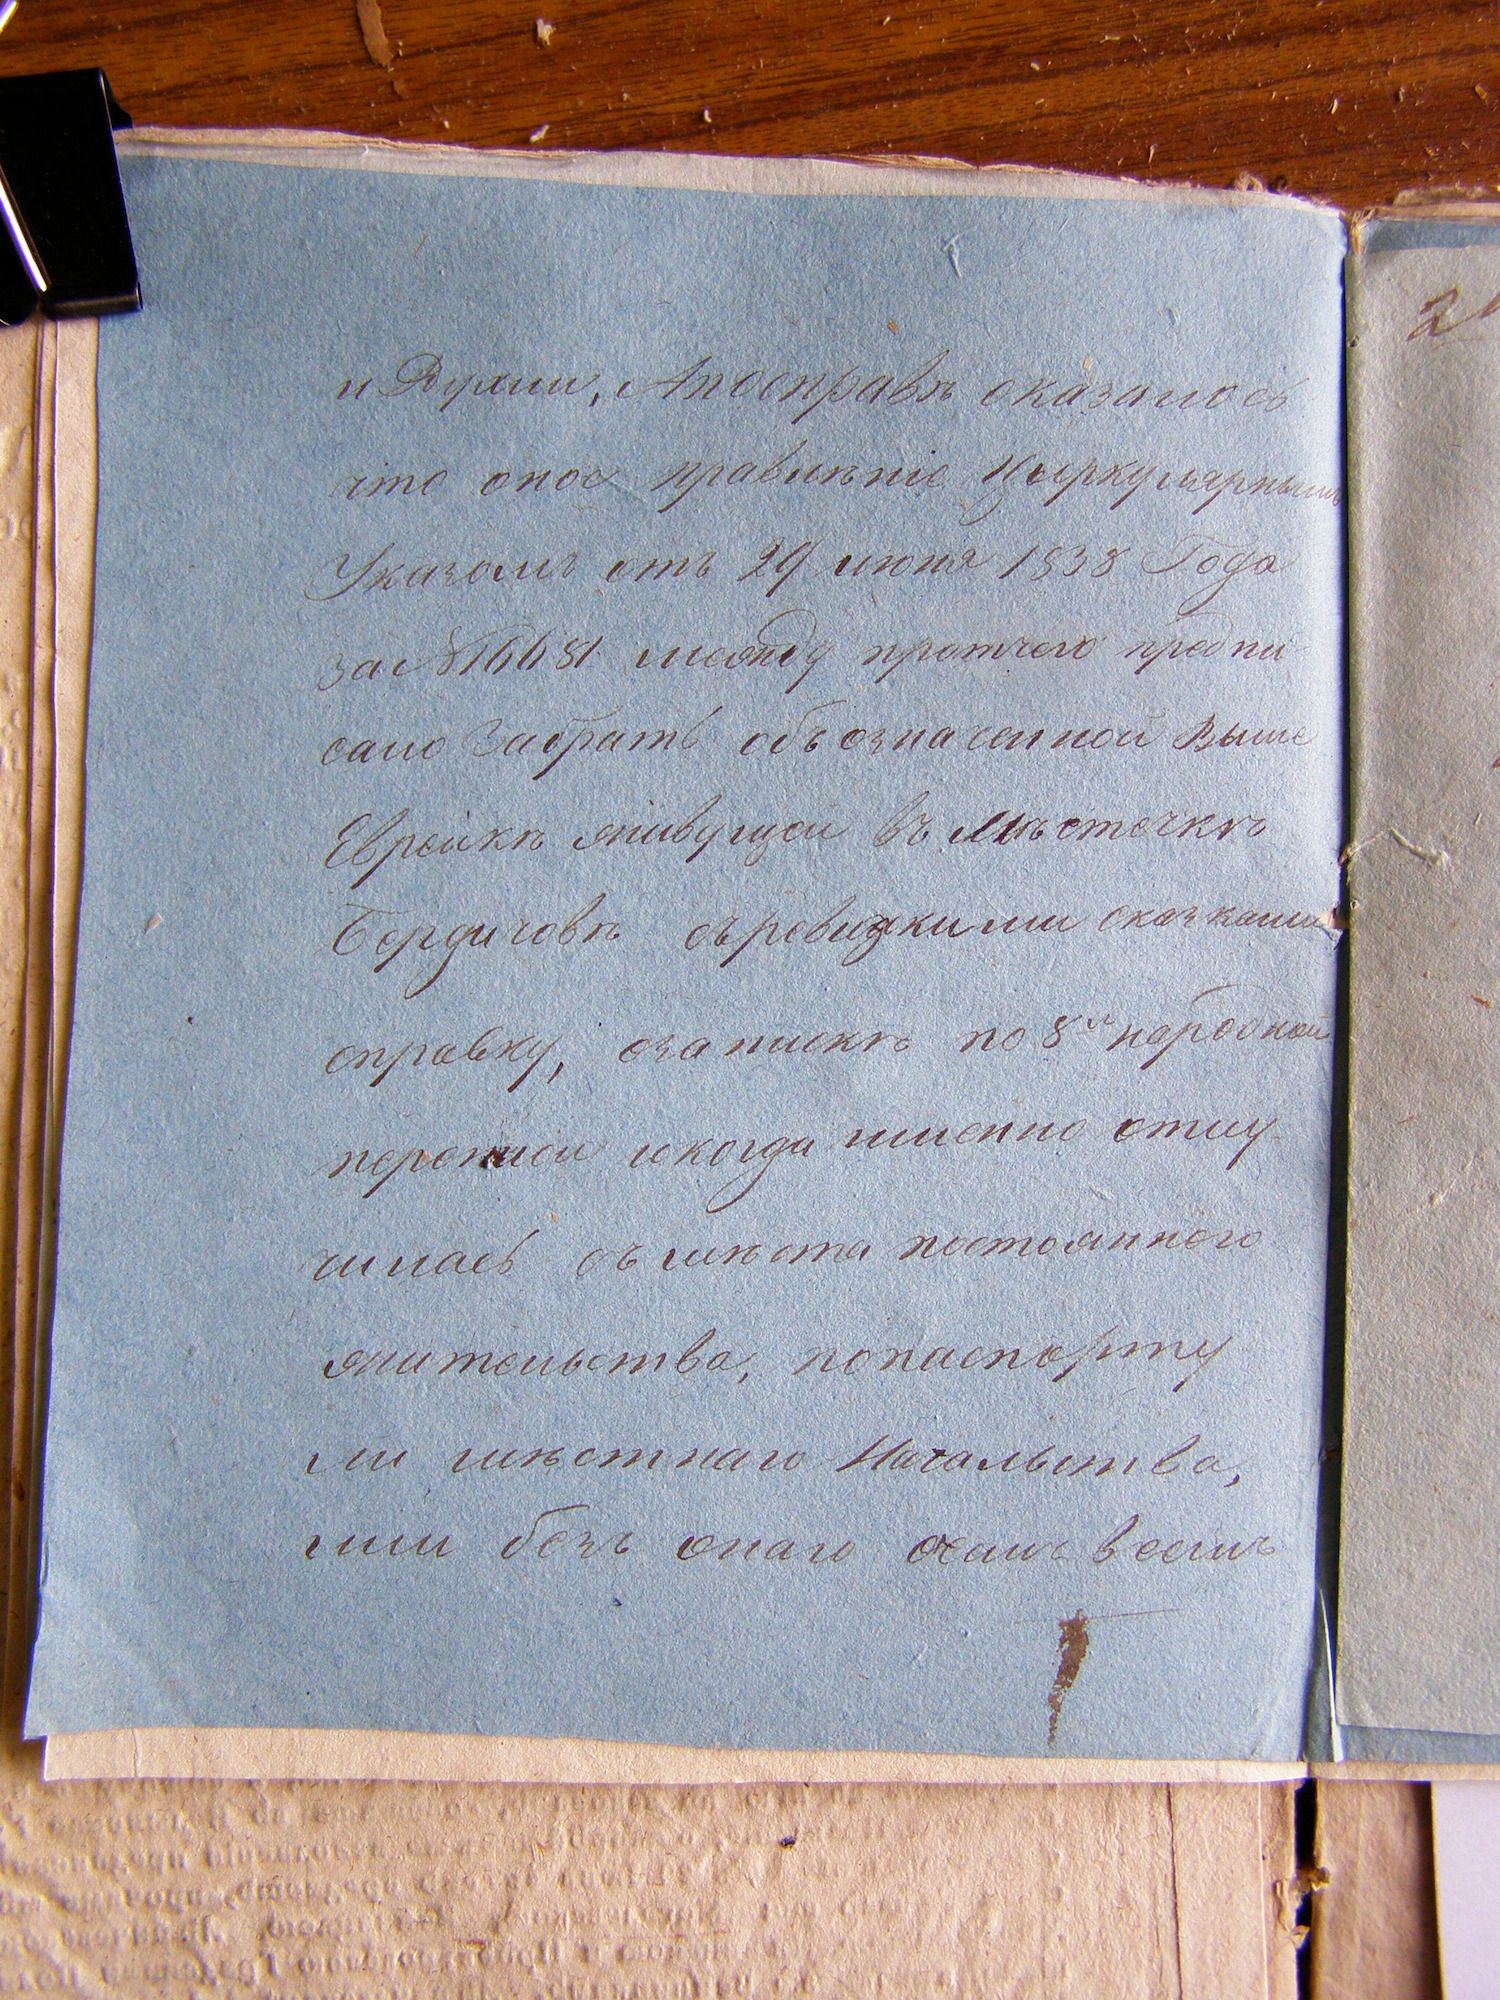 и Думы, Апосправкѣ оказалось
что оное правленіе Цыркулярнымъ
Указомъ отъ 29 июня 1838 Года
за № 16681 между протчего предпи-
сало Забрать объ означенной выше
Еврейкѣ живущей въ мѣстечкѣ
Бердичовѣ съ ревизкими сказками
справку, озапискѣ по 8й народной
переписи и когда именно отлу-
чилась съ мѣста постоянного
жительства, попаспорту
ли мѣстнаго Начальства,
или безъ онаго осемъ всемъ
2